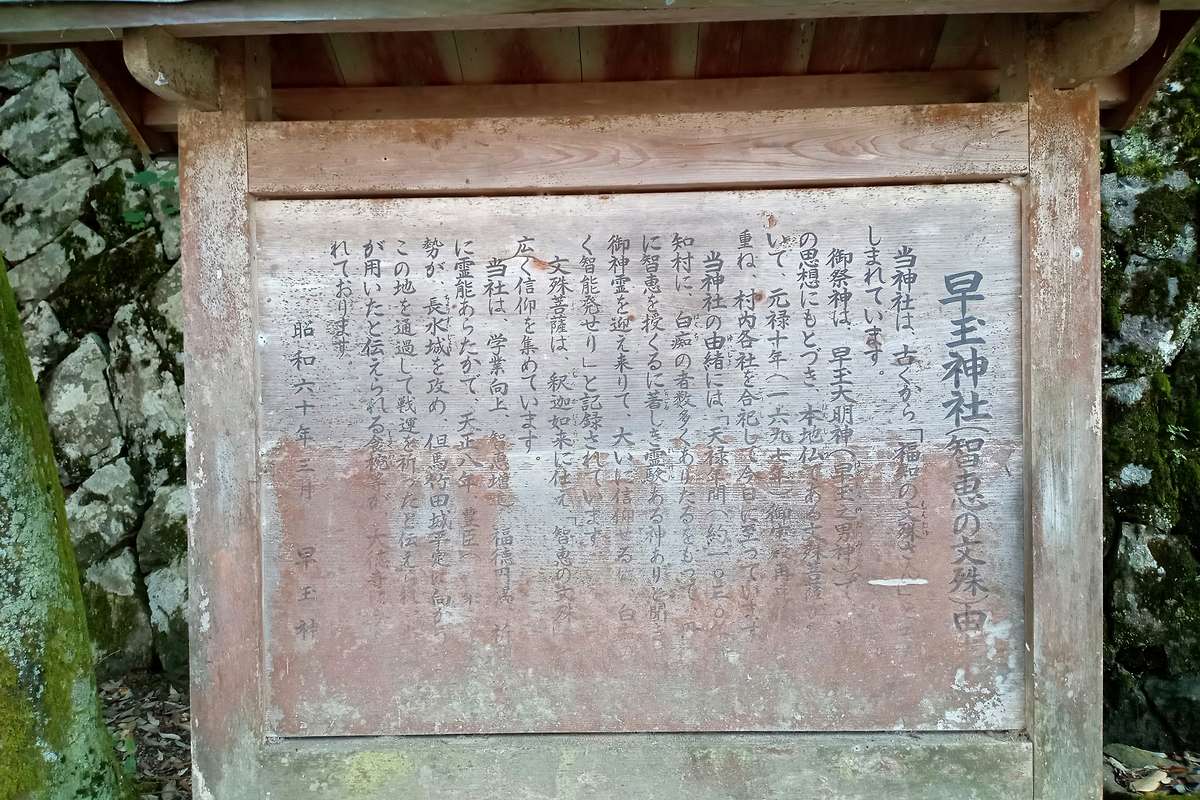 早玉神社（智恵の文殊）由
当神社は、古くから「福知の文殊さん」と
しまれています。
御祭神は、早玉大明神（早玉之男神）で、
の思想にもとづき、本地仏である文殊菩薩
いて、元禄十年（一六九七年）御
重ね、村内各社を合祀して今日に至っています
当神社の由緒には、「天禄年間（約一〇三〇
知村に、白痴の者数多くありたるをもって、
に智恵を授くるに著しき霊験ある神ありと聞き
御神霊を迎え来りて、大いに信仰せるに、白
く智能発せり」と記録されています
文殊菩薩は、釈迦如来に仕え、智恵の文殊
広く信仰を集めています。
当社は、学業向上、智恵増進、福徳円満
に霊能あらたかで、天正八年 豊臣
勢が、長水城を攻め、但馬竹田城平定に向か
この地を通過して戦運を祈ったと伝え
が用いたと伝えられる 大徳寺
れております。
昭和六十年三月 早玉神